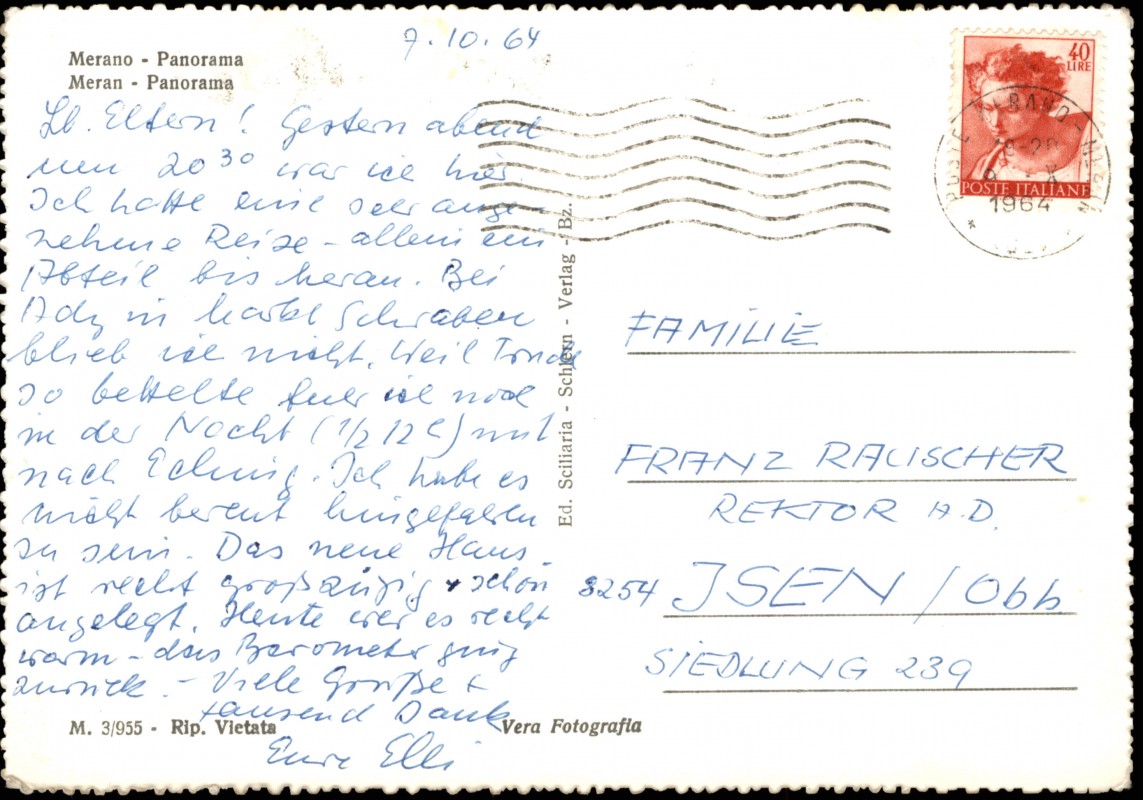 Merano - Panorama
Meran - Panorama
7.10.64
Lb. Eltern! Gestern abend
um 20 30 war ich hier.
Ich hatte eine sehr ange-
nehme Reise - allein ein
Abteil bis heran. Bei
Ady in Markt Schwaben
blieb ich nicht. Weil
so bettelte fuhr ich noch
in der Nacht (1/2 12 h) mit
nach Eching. Ich habe es
nicht bereut hingefahren
zu sein. Das neue Haus
ist recht großzügig + schön
angelegt. Heute war es recht
warm - das Barometer ging
zurück. - Viele Grüße +
tausend Dank
Eure Elli
M. 3/955 - Rip. Vietata
Vera Fotografia
Ed. Sciliaria - Schlern - Verlag - Bz.
40
LIRE
POSTE ITALIANE
1964
FAMILIE
FRANZ RAUSCHER
REKTOR A.D.
8254 ISEN / Obb
SIEDLUNG 239